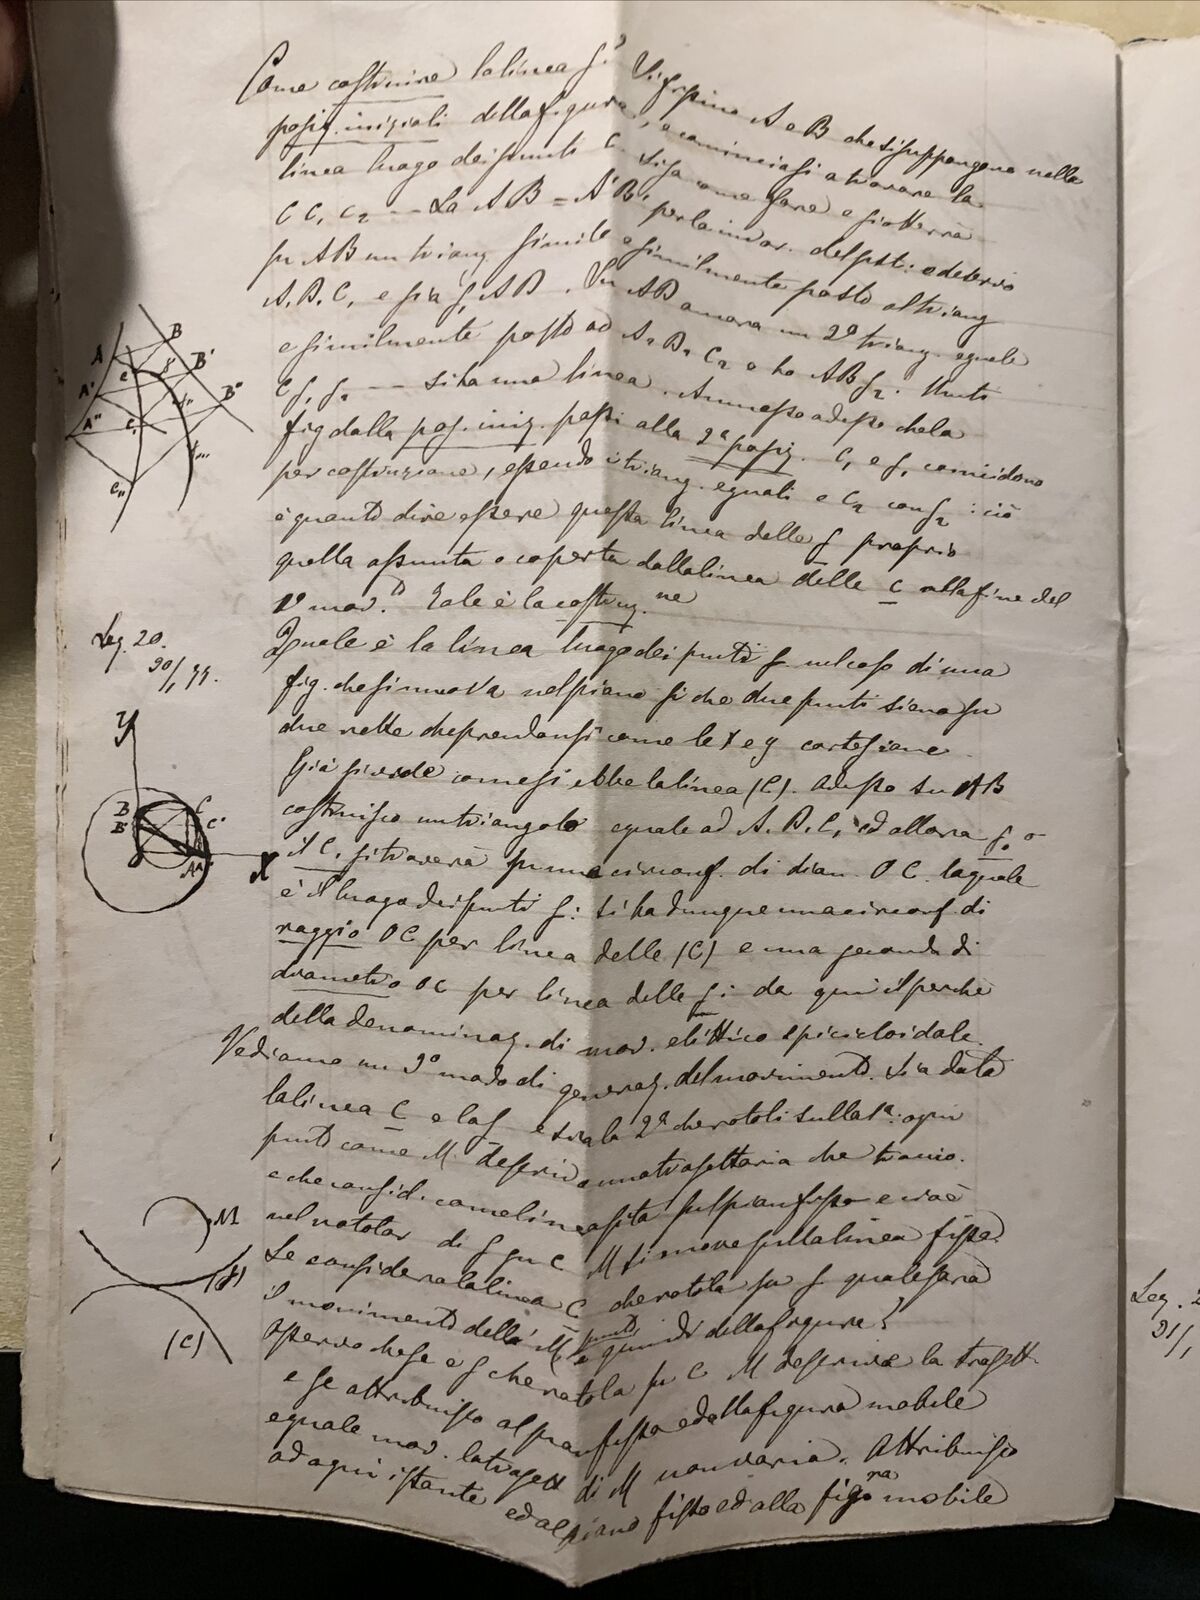 Come costruire la linea γ? Si segnino A e B che si suppongono nella
posiz. iniziali della figura, e cominciasi a trovare la
linea luogo dei punti C. Si sa come fare e si otterrà
C C₁ C₂ — La AB = A'B', per la invar. del sist: e descrivo
su AB un triang. simile e similmente posto al triang
A₁B₁C₁ e sia γ₁AB. Su AB ancora un 2º triang. eguale
e similmente posto ad A₂B₂C₂ e ho ABγ₂. Uniti
Cγ₁γ₂ — si ha una linea. Ammesso adesso che la
fig dalla pos. iniz. passi alla 2ª posiz. C₁ e γ₁ coincidono
per costruzione, essendo i triang. eguali e C₂ con γ₂: ciò
è quanto dire essere questa linea delle γ proprio
quella assunta o coperta dalla linea delle C alla fine del
mov.to Tale è la costruz.ne
Lez. 20.
Quale è la linea luogo dei punti γ nel caso di una
fig. che si muova nel piano sì che due punti siano su
due rette che prendansi come le x e y cartesiane
Già si vide come si ebbe la linea (C). Adesso su AB
costruisco un triangolo eguale ad A₁B₁C₁, ed allora γ₀ o
il C₁ si troverà su una circonf. di diam. OC la quale
è il luogo dei punti γ: si ha dunque una circonf. di
raggio OC per linea delle (C) e una seconda di
diametro OC per linea delle γ: da qui il perchè
della denominaz. di mov. elittico epicicloidale.
Vediamo un 2º modo di generaz. del movimento. Sia data
la linea C e la γ e sia la 2ª che rotoli sulla 1ª: ogni
punto come M descrive una traiettoria che traccio.
e che consid. come linea sita sul pian fisso e cioè
nel rotolar di γ su C M si move sulla linea fissa.
Se considera la linea C che rotola su γ quale sarà
il movimento della M, punto e quindi della figura?
Osservo che se è γ che rotola su C M descrive la traiett.
e se attribuisco al pian fisso e dalla figura mobile
eguale mov. la traiett di M non varia. Attribuisco
ad ogni istante ed al piano fisso ed alla figura mobile
A
B
A'
B'
A''
B''
C
γ
C₁
γ₁₁
C₁₁
γ₁₁₁
Y
B
B'
C
C'
A
X
M
(γ)
(C)
Lez. 2